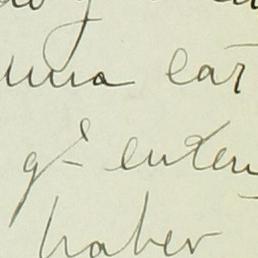 una car
qe enten
haber